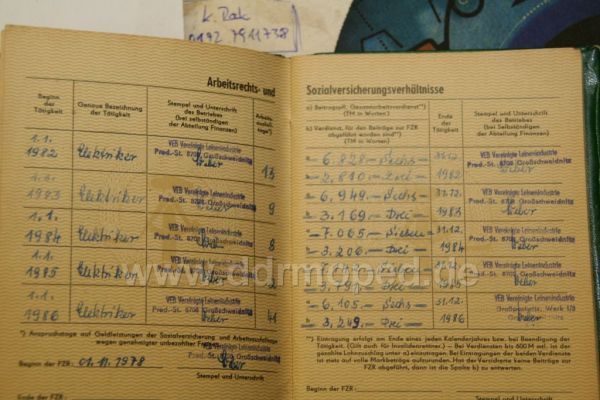 K. Rak
0172 7911738
Arbeitsrechts- und
Beginn der Tätigkeit
Genaue Bezeichnung der Tätigkeit
Stempel und Unterschrift des Betriebes (bei selbständigen der Abteilung Finanzen)
1.1. 1982 Elektriker
VEB Vereinigte Leinenindustrie
Prod.-St. 8708 Großschweidnitz
Weber
13
1983 Elektriker
VEB Vereinigte Leinenindustrie
Prod.-St. 8708 Großschweidnitz
Weber
9
1.1. 1984 Elektriker
VEB Vereinigte Leinenindustrie
Prod.-St. 8708 Großschweidnitz
8
1.1. 1985 Elektriker
VEB Vereinigte Leinenindustrie
Prod.-St. 8708 Großschweidnitz
Weber
2
1.1. 1986 Elektriker
VEB Vereinigte Leinenindustrie
Weber
*) Anspruchstage auf Geldleistungen der Sozialversicherung und Arbeitsausfalltage
wegen genehmigter unbezahlter
Beginn der FZR: 01.11.1978
Stempel und Unterschrift
Sozialversicherungsverhältnisse
a) Beitragspfl. Gesamtarbeitsverdienst**)
(TM in Worten)
b) Verdienst, für den Beiträge zur FZR
abgeführt worden sind**)
(TM in Worten)
Ende der Tätigkeit
Stempel und Unterschrift des Betriebes (bei selbständigen der Abteilung Finanzen)
6.828.- Sechs- 31.12.
2.810.- 1982
VEB Vereinigte Leinenindustrie
Prod.-St. 8708 Großschweidnitz
Weber
6.949.- Sechs- 31.12.
3.169.- Drei- 1983
VEB Vereinigte Leinenindustrie
Prod.-St. 8708 Großschweidnitz
Weber
7.065.- Sieben- 31.12.
3.206.- Drei- 1984
VEB Vereinigte Leinenindustrie
Prod.-St. 8708 Großschweidnitz
Weber
1985
VEB Vereinigte Leinenindustrie
Prod.-St. 8708 Großschweidnitz
Weber
6.105.- Sechs- 31.12.
3.249.- Drei- 1986
VEB Vereinigte Leinenindustrie
**) Eintragung erfolgt am Ende eines jeden Kalenderjahres bzw. bei Beendigung der
Tätigkeit. (Gilt auch für Invalidenrentner.) – Bei Verdiensten bis 600 M mtl. ist der
gezahlte Lohnzuschlag unter a) einzutragen. Bei Eintragungen der beiden Verdienste
ist stets auf volle Markbeträge aufzurunden. Hat der Versicherte keine Beiträge zur FZR
abgeführt, dann ist die Spalte b) zu entwerten.
Beginn der FZR:
Stempel und Unterschrift
www.ddrmoped.de